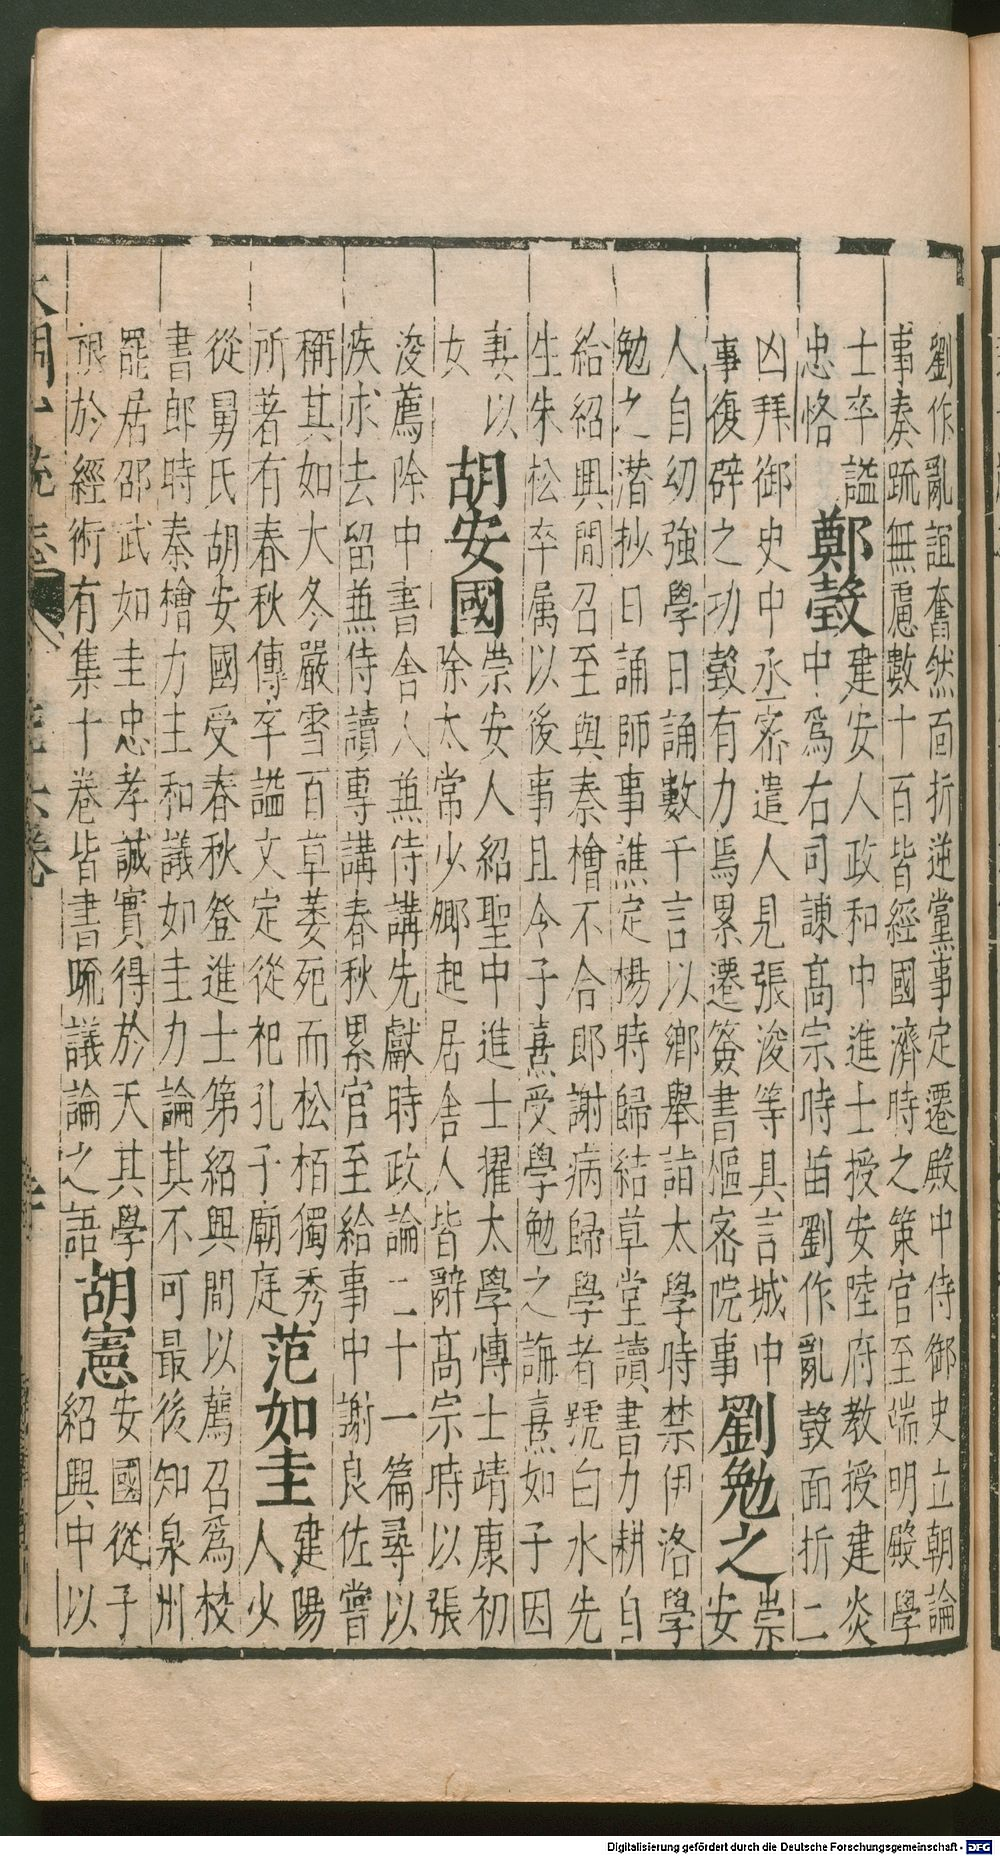 劉作亂誼奮然面折逆黨事定遷殿中侍御史立朝論
事奏䟽無慮數十百皆經國濟時之策官至端明殿學
士卒謚
鄭瑴
建安人政和中進士授安陸府教授建炎
忠恪
中爲右司諫高宗時苗劉作亂瑴面折二
凶拜御史中丞宻遣人見張浚等具言城中
劉勉之
崇
事復辟之功瑴有力焉累遷簽書樞宻院事
安
人自幼強學日誦數千言以鄉舉詣太學時禁伊洛學
勉之潜抄日誦師事譙定楊時歸結草堂讀書力耕自
給紹興間召至與秦檜不合郎謝病歸學者號白水先
生朱松卒属以後事且令子熹受學勉之誨熹如子因
妻以
胡安國
崇安人紹聖中進士擢太學博士靖康初
女
除太常少卿起居舍人皆辭高宗時以張
浚薦除中書舍人兼侍講先獻時政論二十一篇尋以
疾求去留兼侍讀專講春秋累官至給事中謝良佐嘗
稱其如大冬嚴雪百草萎死而松栢獨秀
范如圭
建陽
所著有春秋傳卒謚文定從祀孔子廟庭
人少
從舅氏胡安國受春秋登進士第紹興間以薦召爲校
書郎時秦檜力主和議如圭力論其不可最後知泉州
罷居邵武如圭忠孝誠實得於天其學
胡憲
安國從子
根於經術有集十卷皆書䟽議論之語
紹興中以